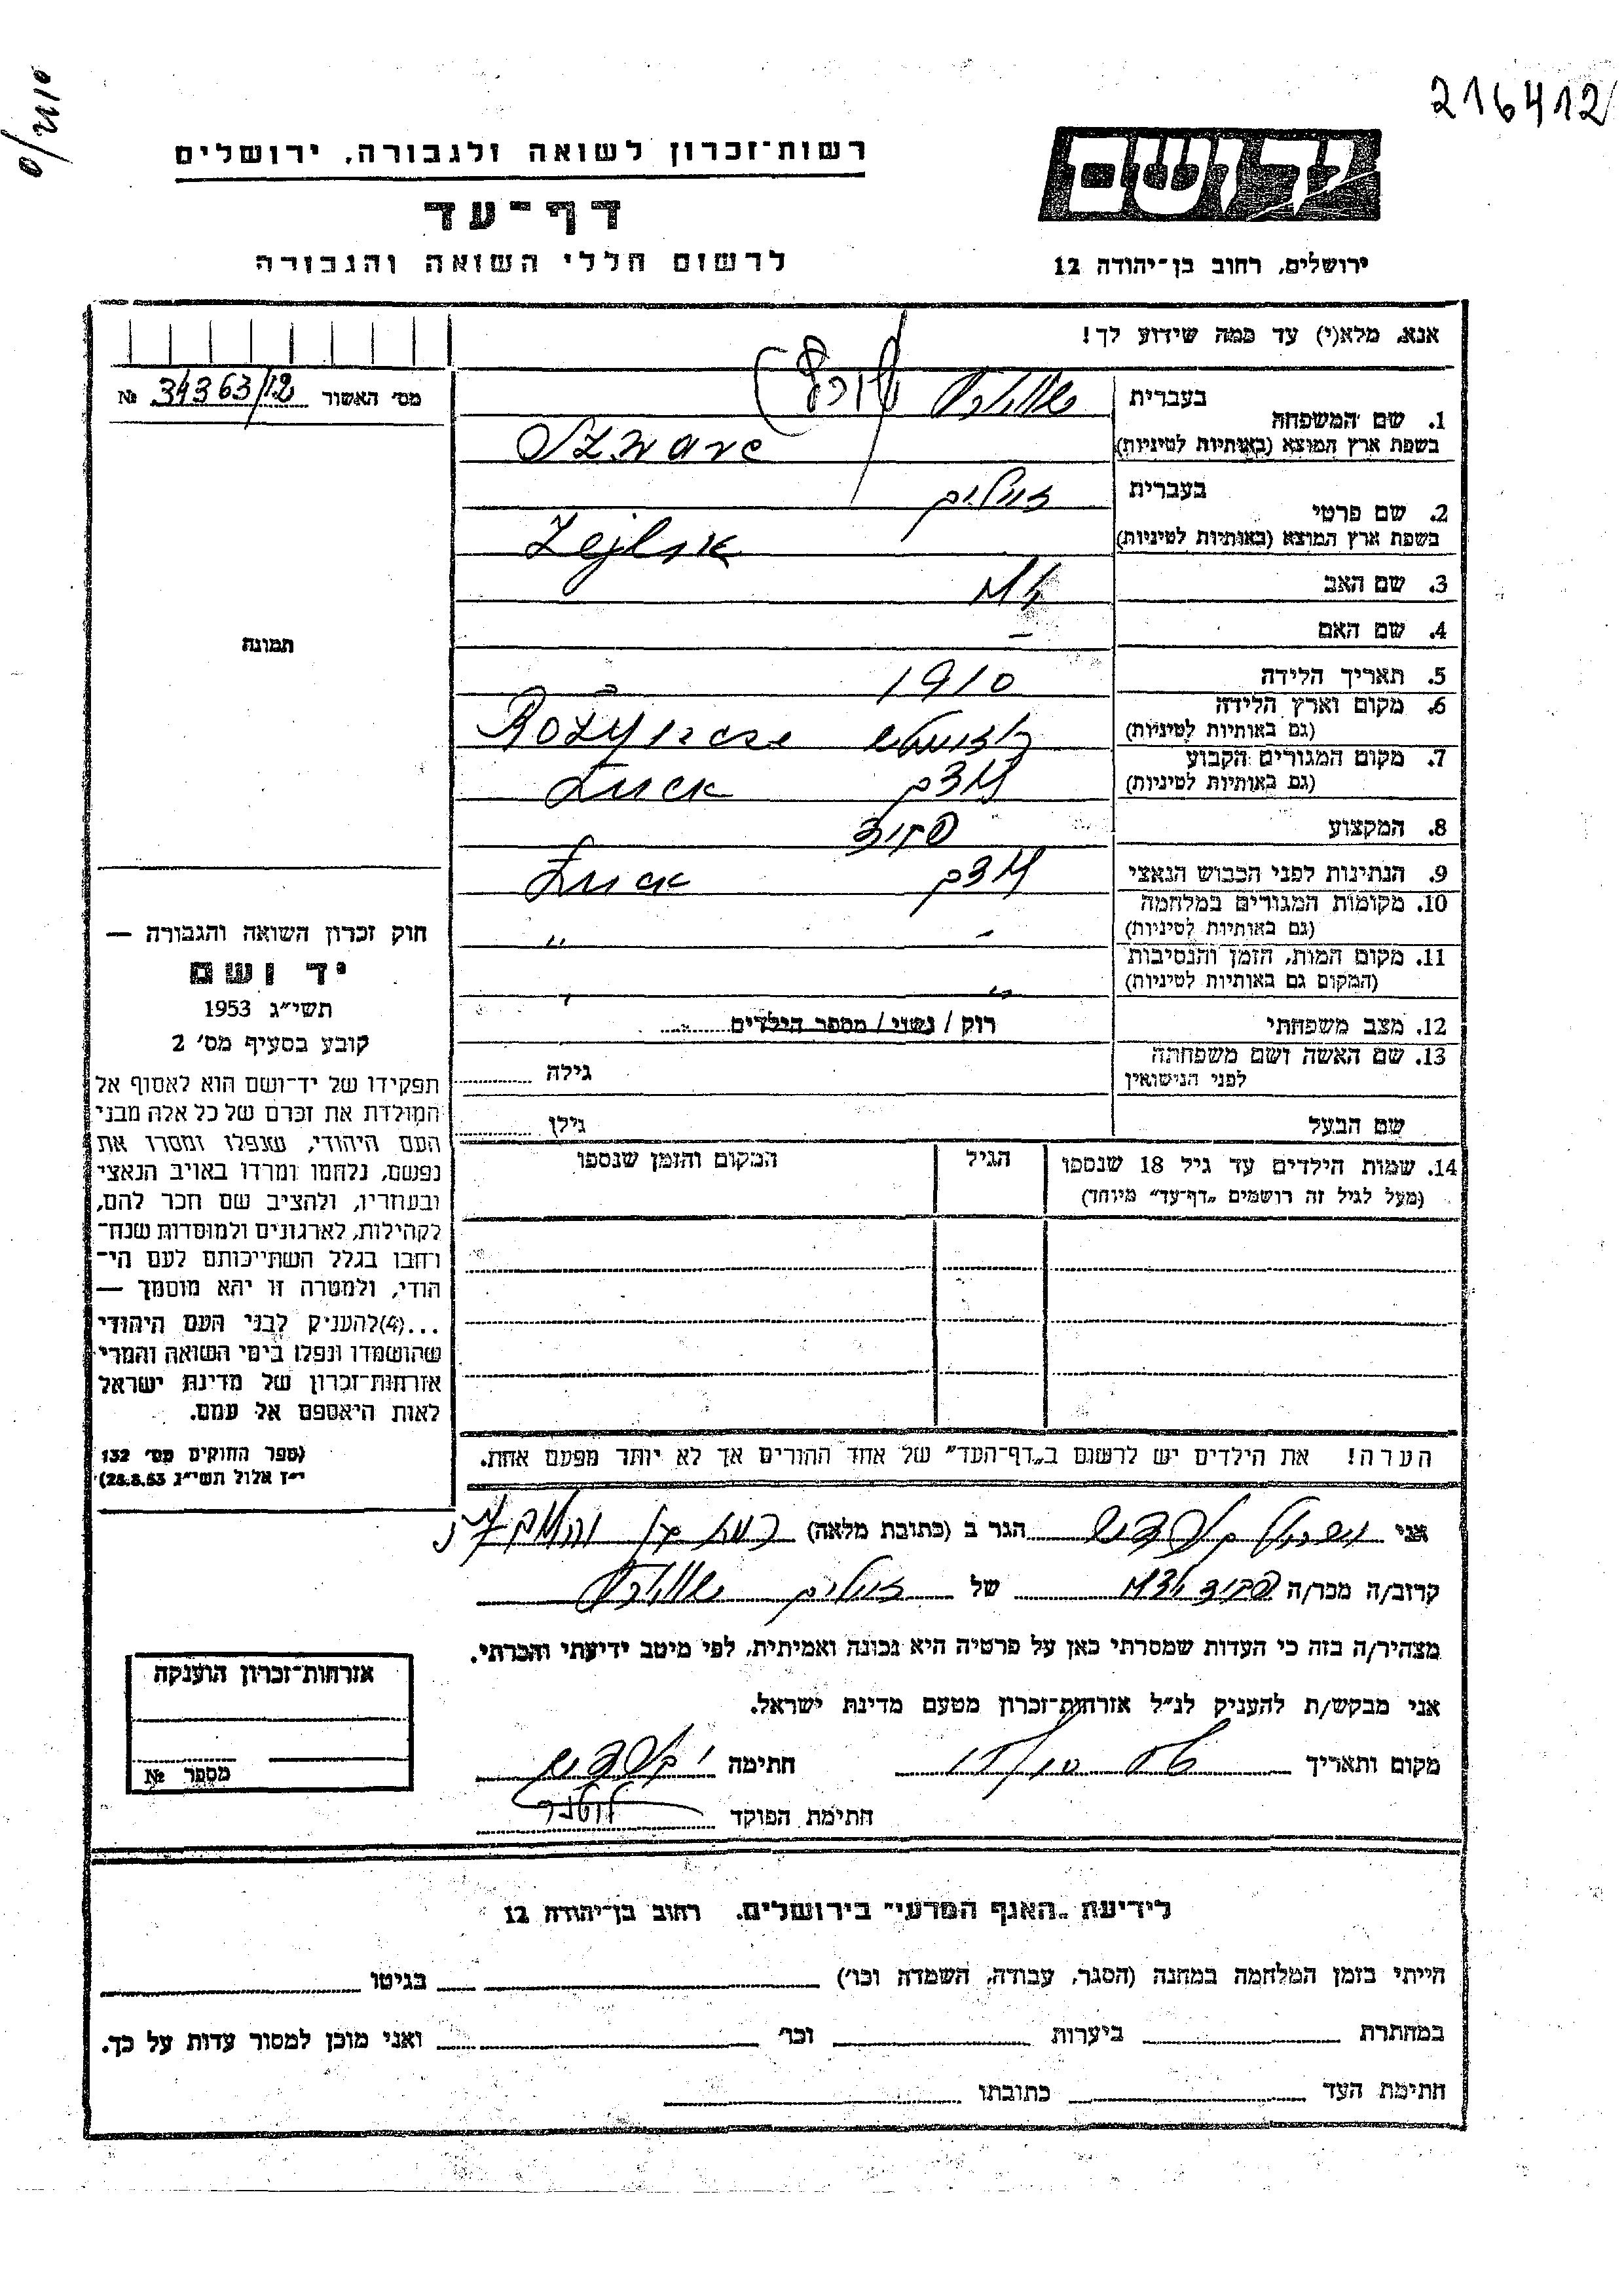 216412
רשות־זכרון לשואה ולגבורה, ירושלים
יד ושם
דף־עד
לרשום חללי השואה והגבורה
ירושלים, רחוב בן־יהודה 12
אנא, מלא(י) עד כמה שידוע לך!
מס' האשור 34363/12 №
1. שם המשפחה
בעברית
בשפת ארץ המוצא (באותיות לטיניות) Szwarc
2. שם פרטי
בעברית
בשפת ארץ המוצא (באותיות לטיניות)
3. שם האב
4. שם האם –
5. תאריך הלידה 1910
6. מקום וארץ הלידה
(גם באותיות לטיניות)
7. מקום המגורים הקבוע לוצק Łuck
(גם באותיות לטיניות)
8. המקצוע פקיד
9. הנתינות לפני הכבוש הנאצי לוצק Łuck
10. מקומות המגורים במלחמה
(גם באותיות לטיניות) - "
11. מקום המות, הזמן והנסיבות
(המקום גם באותיות לטיניות) " "
12. מצב משפחתי רוק / נשוי / מספר הילדים
13. שם האשה ושם משפחתה
לפני הנישואין
גילה
שם הבעל
גילו
תמונה
חוק זכרון השואה והגבורה —
יד ושם
תשי״ג 1953
קובע בסעיף מס' 2
תפקידו של יד־ושם הוא לאסוף אל
המולדת את זכרם של כל אלה מבני
העם היהודי, שנפלו ומסרו את
נפשם, נלחמו ומרדו באויב הנאצי
ובעוזריו, ולהציב שם וזכר להם,
לקהילות, לארגונים ולמוסדות שנח־
רבו בגלל השתייכותם לעם הי־
הודי, ולמטרה זו יהא מוסמך —
...(4)להעניק לבני העם היהודי
שהושמדו ונפלו בימי השואה והמרי
אזרחות־זכרון של מדינת ישראל
לאות היאספם אל עמם.
(ספר החוקים מס' 132
י״ז אלול תשי״ג 28.8.53)
14. שמות הילדים עד גיל 18 שנספו
(מעל לגיל זה רושמים „דף־עד״ מיוחד)
הגיל
המקום והזמן שנספו
הערה! את הילדים יש לרשום ב„דף־העד״ של אחד ההורים אך לא יותר מפעם אחת.
אני הגר ב (כתובת מלאה) רמת גן
קרוב/ה מכר/ה של
מצהיר/ה בזה כי העדות שמסרתי כאן על פרטיה היא נכונה ואמיתית, לפי מיטב ידיעתי והכרתי.
אני מבקש/ת להעניק לנ״ל אזרחות־זכרון מטעם מדינת ישראל.
מקום ותאריך חתימה
חתימת הפוקד
אזרחות־זכרון הוענקה
מספר №
לידיעת „האגף המדעי״ בירושלים, רחוב בן־יהודה 12
הייתי בזמן המלחמה במחנה (הסגר, עבודה, השמדה וכו') בגיטו
במחתרת ביערות וכו' ואני מוכן למסור עדות על כך.
חתימת העד כתובתו